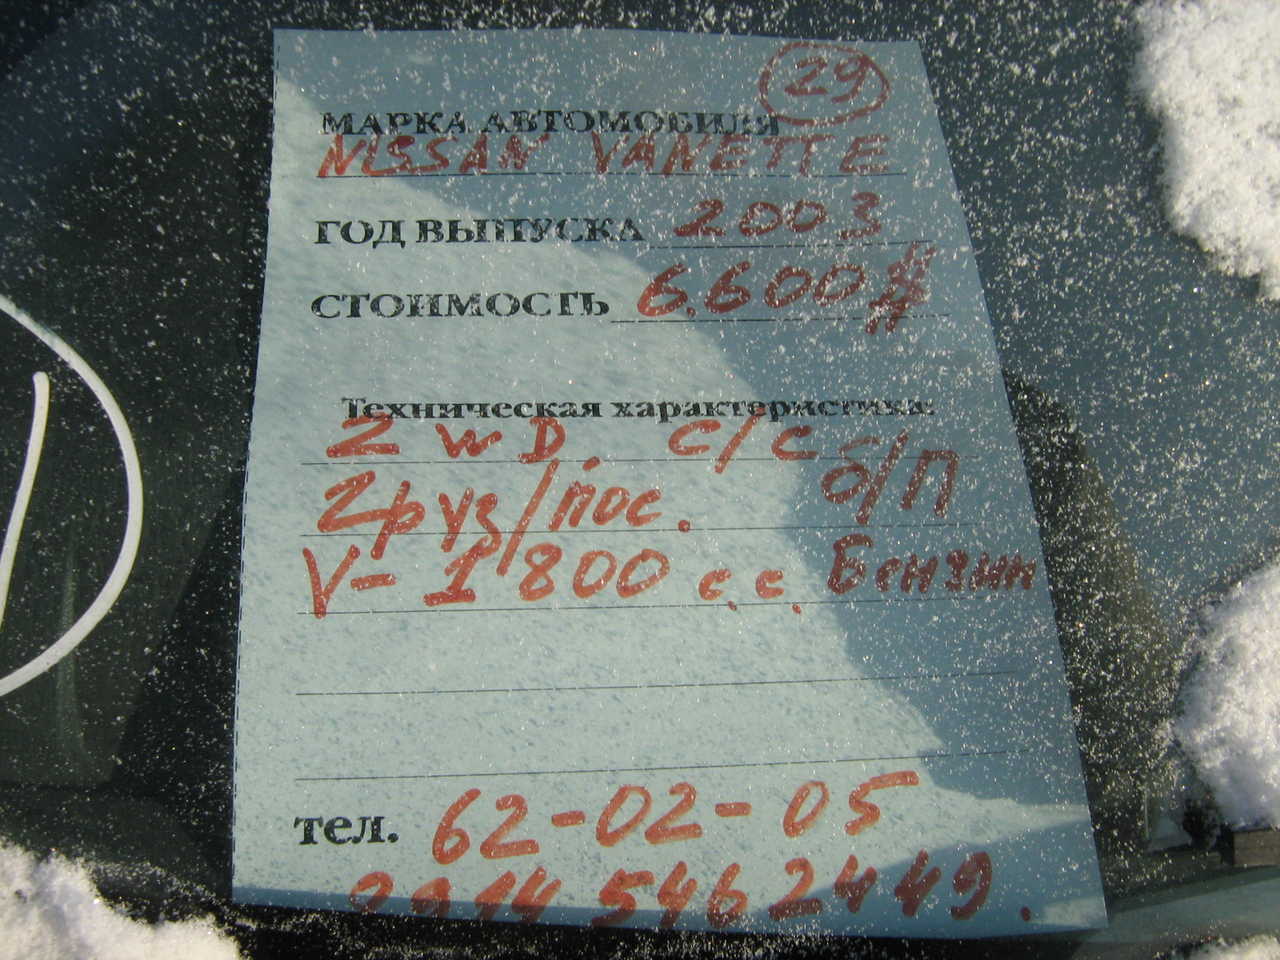 29
МАРКА АВТОМОБИЛЯ
NISSAN VANETTE
ГОД ВЫПУСКА 2003
СТОИМОСТЬ 6.600 $
Техническая характеристика:
2 WD. с/с б/п
Груз/пос.
V-1800 с.с. Бензин
тел. 62-02-05
89145462449.